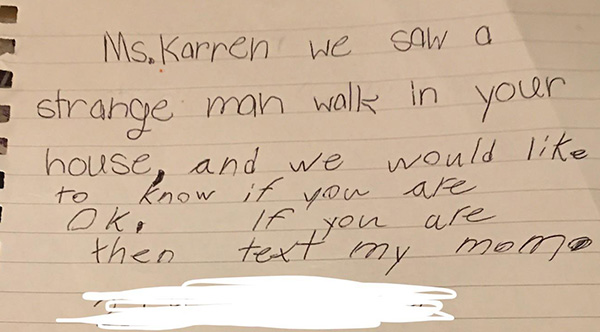 Ms. Karren we saw a
strange man walk in your
house, and we would like
to know if you are
OK. If you are
then text my mom.